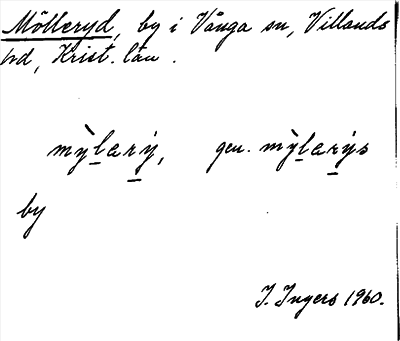 Mölleryd, by i Vånga sn, Villands
hd, Krist. län.
mỳlarý, gen. mỳlarýs
by
I. Ingers 1960.